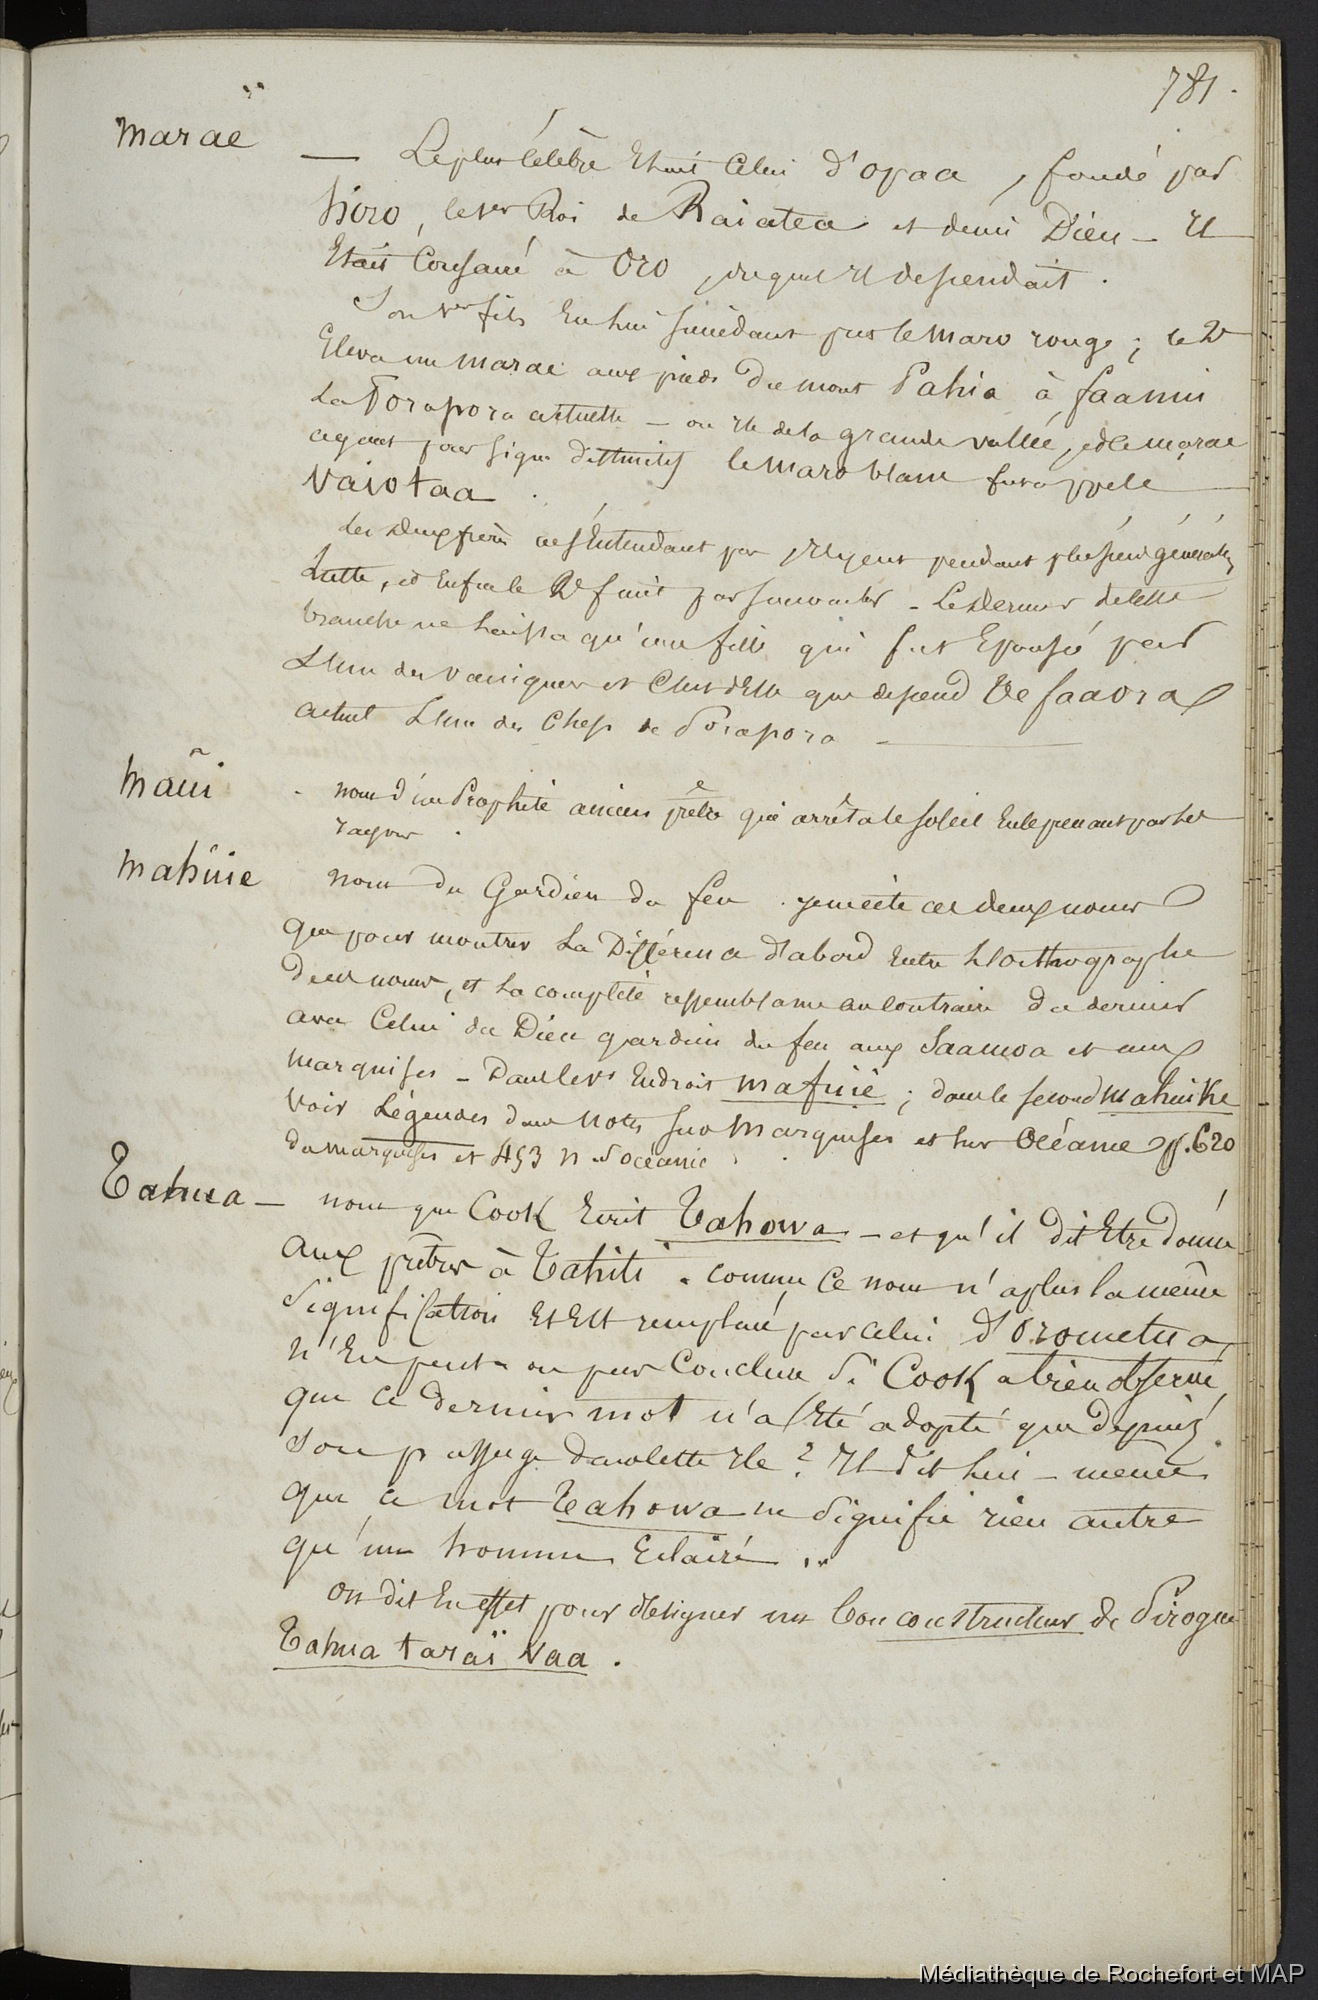 781.
Marae — Le plus célèbre Etait Celui d'opoa, fondé par
hiro, le 1er Roi de Raiatea et demi Dieu — Il
Etait Consacré à Oro, duquel Il dependait.
Son 1er fils En lui succédant prit le maro rouge ; le 2e
Eleva un marae aux pieds du mont Pahia à faanui
La Porapora actuelle — ou Ile de la grande vallée, et ce marae
ayant pour signe distinctif le maro blanc fut appelé
Vaiotaa.
Les deux frères ne s'Entendant pas, Il y eut pendant plusieurs générations
Lutte, et Enfin le 2e finit par succomber — Le Dernier de cette
branche ne laissa qu'une fille qui fut Epousée par
L'un des vainqueurs et C'est d'Elle que descend Tefaaora
actuel L'un des Chefs de Porapora —
Maüi . nom d'un Prophète ancien prêtre qui arrêta le soleil En le prenant par les
rayons.
Mahüie nom du Gardien du feu . je ne cite ces deux noms
que pour montrer La Différence d'abord Entre l'orthographe
des noms, et La complète ressemblance au contraire du dernier
avec Celui du Dieu gardien du feu aux Saamoa et aux
marquises — Dans le 1er Endroit mafuié ; dans le second mahuike
voir Légendes dans notes sur Marquises et sur Océanie p. 620
du marquises et 453 n. d'océanie.
Tahua — nom que Cook Ecrit Tahowa — et qu'il dit Etre donné
aux prêtres à Tahiti . comme Ce nom n'a plus la même
signification Et Est remplacé par celui d'orometua,
n'En peut-on pas Conclure si Cook a bien observé,
que ce dernier mot n'a Eté adopté que depuis
son passage dans cette Ile ? Il dit lui-même
que ce mot Tahowa ne signifie rien autre
qu'un homme Eclairé ..
On dit En effet pour désigner un bon constructeur de Pirogue
Tahua taraï vaa .
Médiathèque de Rochefort et MAP